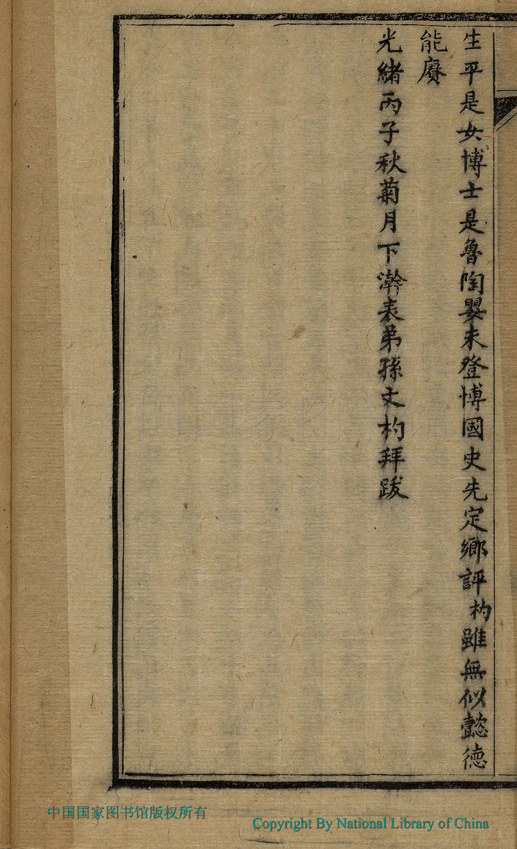 生平是女博士是魯陶嬰未登博國史先定鄉評杓雖無似懿德
能賡
光緒丙子秋菊月下澣表弟孫文杓拜跋
中国国家图书馆版权所有
Copyright By National Library of China